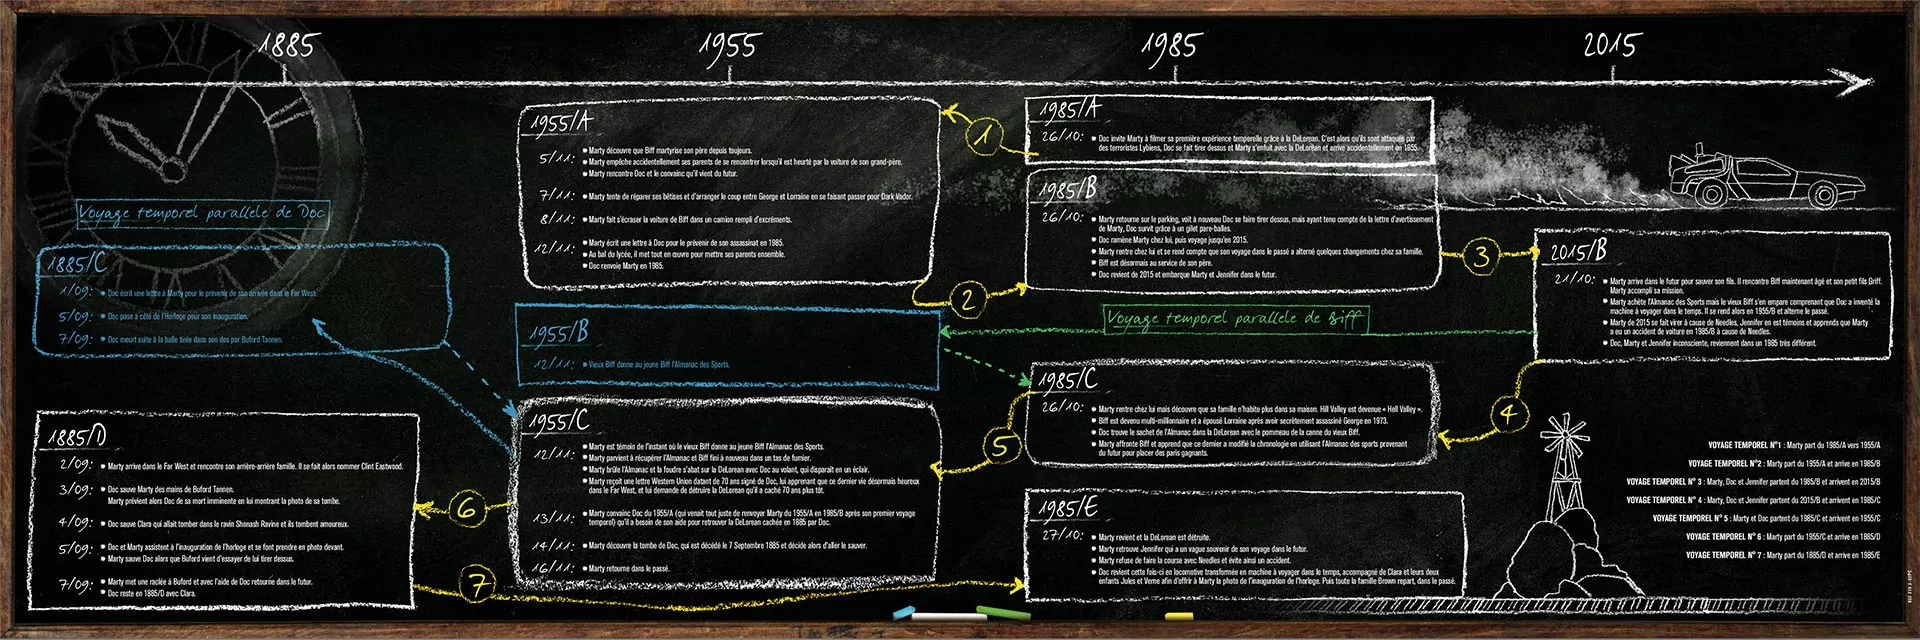 1885
1955
1985
2015
1955/A
5/11:
• Marty découvre que Biff martyrise son père depuis toujours.
• Marty empêche accidentellement ses parents de se rencontrer lorsqu'il est heurté par la voiture de son grand-père.
• Marty rencontre Doc et le convainc qu'il vient du futur.
7/11:
• Marty tente de réparer ses bêtises et d'arranger le coup entre George et Lorraine en se faisant passer pour Dark Vador.
8/11:
• Marty fait s'écraser la voiture de Biff dans un camion rempli d'excréments.
12/11:
• Marty écrit une lettre à Doc pour le prévenir de son assassinat en 1985.
• Au bal du lycée, il met tout en œuvre pour mettre ses parents ensemble.
• Doc renvoie Marty en 1985.
1
1985/A
26/10:
• Doc invite Marty à filmer sa première expérience temporelle grâce à la DeLorean. C'est alors qu'ils sont attaqués par
des terroristes Lybiens, Doc se fait tirer dessus et Marty s'enfuit avec la DeLorean et arrive accidentellement en 1955.
1985/B
26/10:
• Marty retourne sur le parking, voit à nouveau Doc se faire tirer dessus, mais ayant tenu compte de la lettre d'avertissement
de Marty, Doc survit grâce à un gilet pare-balles.
• Doc ramène Marty chez lui, puis voyage jusqu'en 2015.
• Marty rentre chez lui et se rend compte que son voyage dans le passé a alterné quelques changements chez sa famille.
• Biff est désormais au service de son père.
• Doc revient de 2015 et embarque Marty et Jennifer dans le futur.
2
3
2015/B
21/10:
• Marty arrive dans le futur pour sauver son fils. Il rencontre Biff maintenant âgé et son petit fils Griff.
Marty accompli sa mission.
• Marty achète l'Almanac des Sports mais le vieux Biff s'en empare comprenant que Doc a inventé la
machine à voyager dans le temps. Il se rend alors en 1955/B et alterne le passé.
• Marty de 2015 se fait virer à cause de Needles, Jennifer en est témoins et apprends que Marty
a eu un accident de voiture en 1985/B à cause de Needles.
• Doc, Marty et Jennifer inconsciente, reviennent dans un 1985 très différent.
Voyage temporel parallèle de Doc
1885/C
1/09:
• Doc écrit une lettre à Marty pour le prévenir de son arrivée dans le Far West.
5/09:
• Doc pose à côté de l'Horloge pour son inauguration.
7/09:
• Doc meurt suite à la balle tirée dans son dos par Buford Tannen.
1955/B
12/11:
• Vieux Biff donne au jeune Biff l'Almanac des Sports.
Voyage temporel parallèle de Biff
1985/C
26/10:
• Marty rentre chez lui mais découvre que sa famille n'habite plus dans sa maison. Hill Valley est devenue « Hell Valley ».
• Biff est devenu multi-millionnaire et a épousé Lorraine après avoir secrètement assassiné George en 1973.
• Doc trouve le sachet de l'Almanac dans la DeLorean avec le pommeau de la canne du vieux Biff.
• Marty affronte Biff et apprend que ce dernier a modifié la chronologie en utilisant l'Almanac des sports provenant
du futur pour placer des paris gagnants.
4
5
1955/C
12/11:
• Marty est témoin de l'instant où le vieux Biff donne au jeune Biff l'Almanac des Sports.
• Marty parvient à récupérer l'Almanac et Biff fini à nouveau dans un tas de fumier.
• Marty brûle l'Almanac et la foudre s'abat sur la DeLorean avec Doc au volant, qui disparaît en un éclair.
• Marty reçoit une lettre Western Union datant de 70 ans signé de Doc, lui apprenant que ce dernier vie désormais heureux
dans le Far West, et lui demande de détruire la DeLorean qu'il a caché 70 ans plus tôt.
13/11:
• Marty convainc Doc du 1955/A (qui venait tout juste de renvoyer Marty du 1955/A en 1985/B après son premier voyage
temporel) qu'il a besoin de son aide pour retrouver la DeLorean cachée en 1885 par Doc.
14/11:
• Marty découvre la tombe de Doc, qui est décédé le 7 Septembre 1885 et décide alors d'aller le sauver.
16/11:
• Marty retourne dans le passé.
6
1885/D
2/09:
• Marty arrive dans le Far West et rencontre son arrière-arrière famille. Il se fait alors nommer Clint Eastwood.
3/09:
• Doc sauve Marty des mains de Buford Tannen.
Marty prévient alors Doc de sa mort imminente en lui montrant la photo de sa tombe.
4/09:
• Doc sauve Clara qui allait tomber dans le ravin Shonash Ravine et ils tombent amoureux.
5/09:
• Doc et Marty assistent à l'inauguration de l'horloge et se font prendre en photo devant.
• Marty sauve Doc alors que Buford vient d'essayer de lui tirer dessus.
7/09:
• Marty met une raclée à Buford et avec l'aide de Doc retourne dans le futur.
• Doc reste en 1885/D avec Clara.
7
1985/E
27/10:
• Marty revient et la DeLorean est détruite.
• Marty retrouve Jennifer qui a un vague souvenir de son voyage dans le futur.
• Marty refuse de faire la course avec Needles et évite ainsi un accident.
• Doc revient cette fois-ci en locomotive transformée en machine à voyager dans le temps, accompagné de Clara et leurs deux
enfants Jules et Verne afin d'offrir à Marty la photo de l'inauguration de l'horloge. Puis toute la famille Brown repart, dans le passé.
VOYAGE TEMPOREL N°1 : Marty part du 1985/A vers 1955/A
VOYAGE TEMPOREL N°2 : Marty part du 1955/A et arrive en 1985/B
VOYAGE TEMPOREL N° 3 : Marty, Doc et Jennifer partent du 1985/B et arrivent en 2015/B
VOYAGE TEMPOREL N° 4 : Marty, Doc et Jennifer partent du 2015/B et arrivent en 1985/C
VOYAGE TEMPOREL N° 5 : Marty et Doc partent du 1985/C et arrivent en 1955/C
VOYAGE TEMPOREL N° 6 : Marty part du 1955/C et arrive en 1885/D
VOYAGE TEMPOREL N° 7 : Marty part du 1885/D et arrive en 1985/E